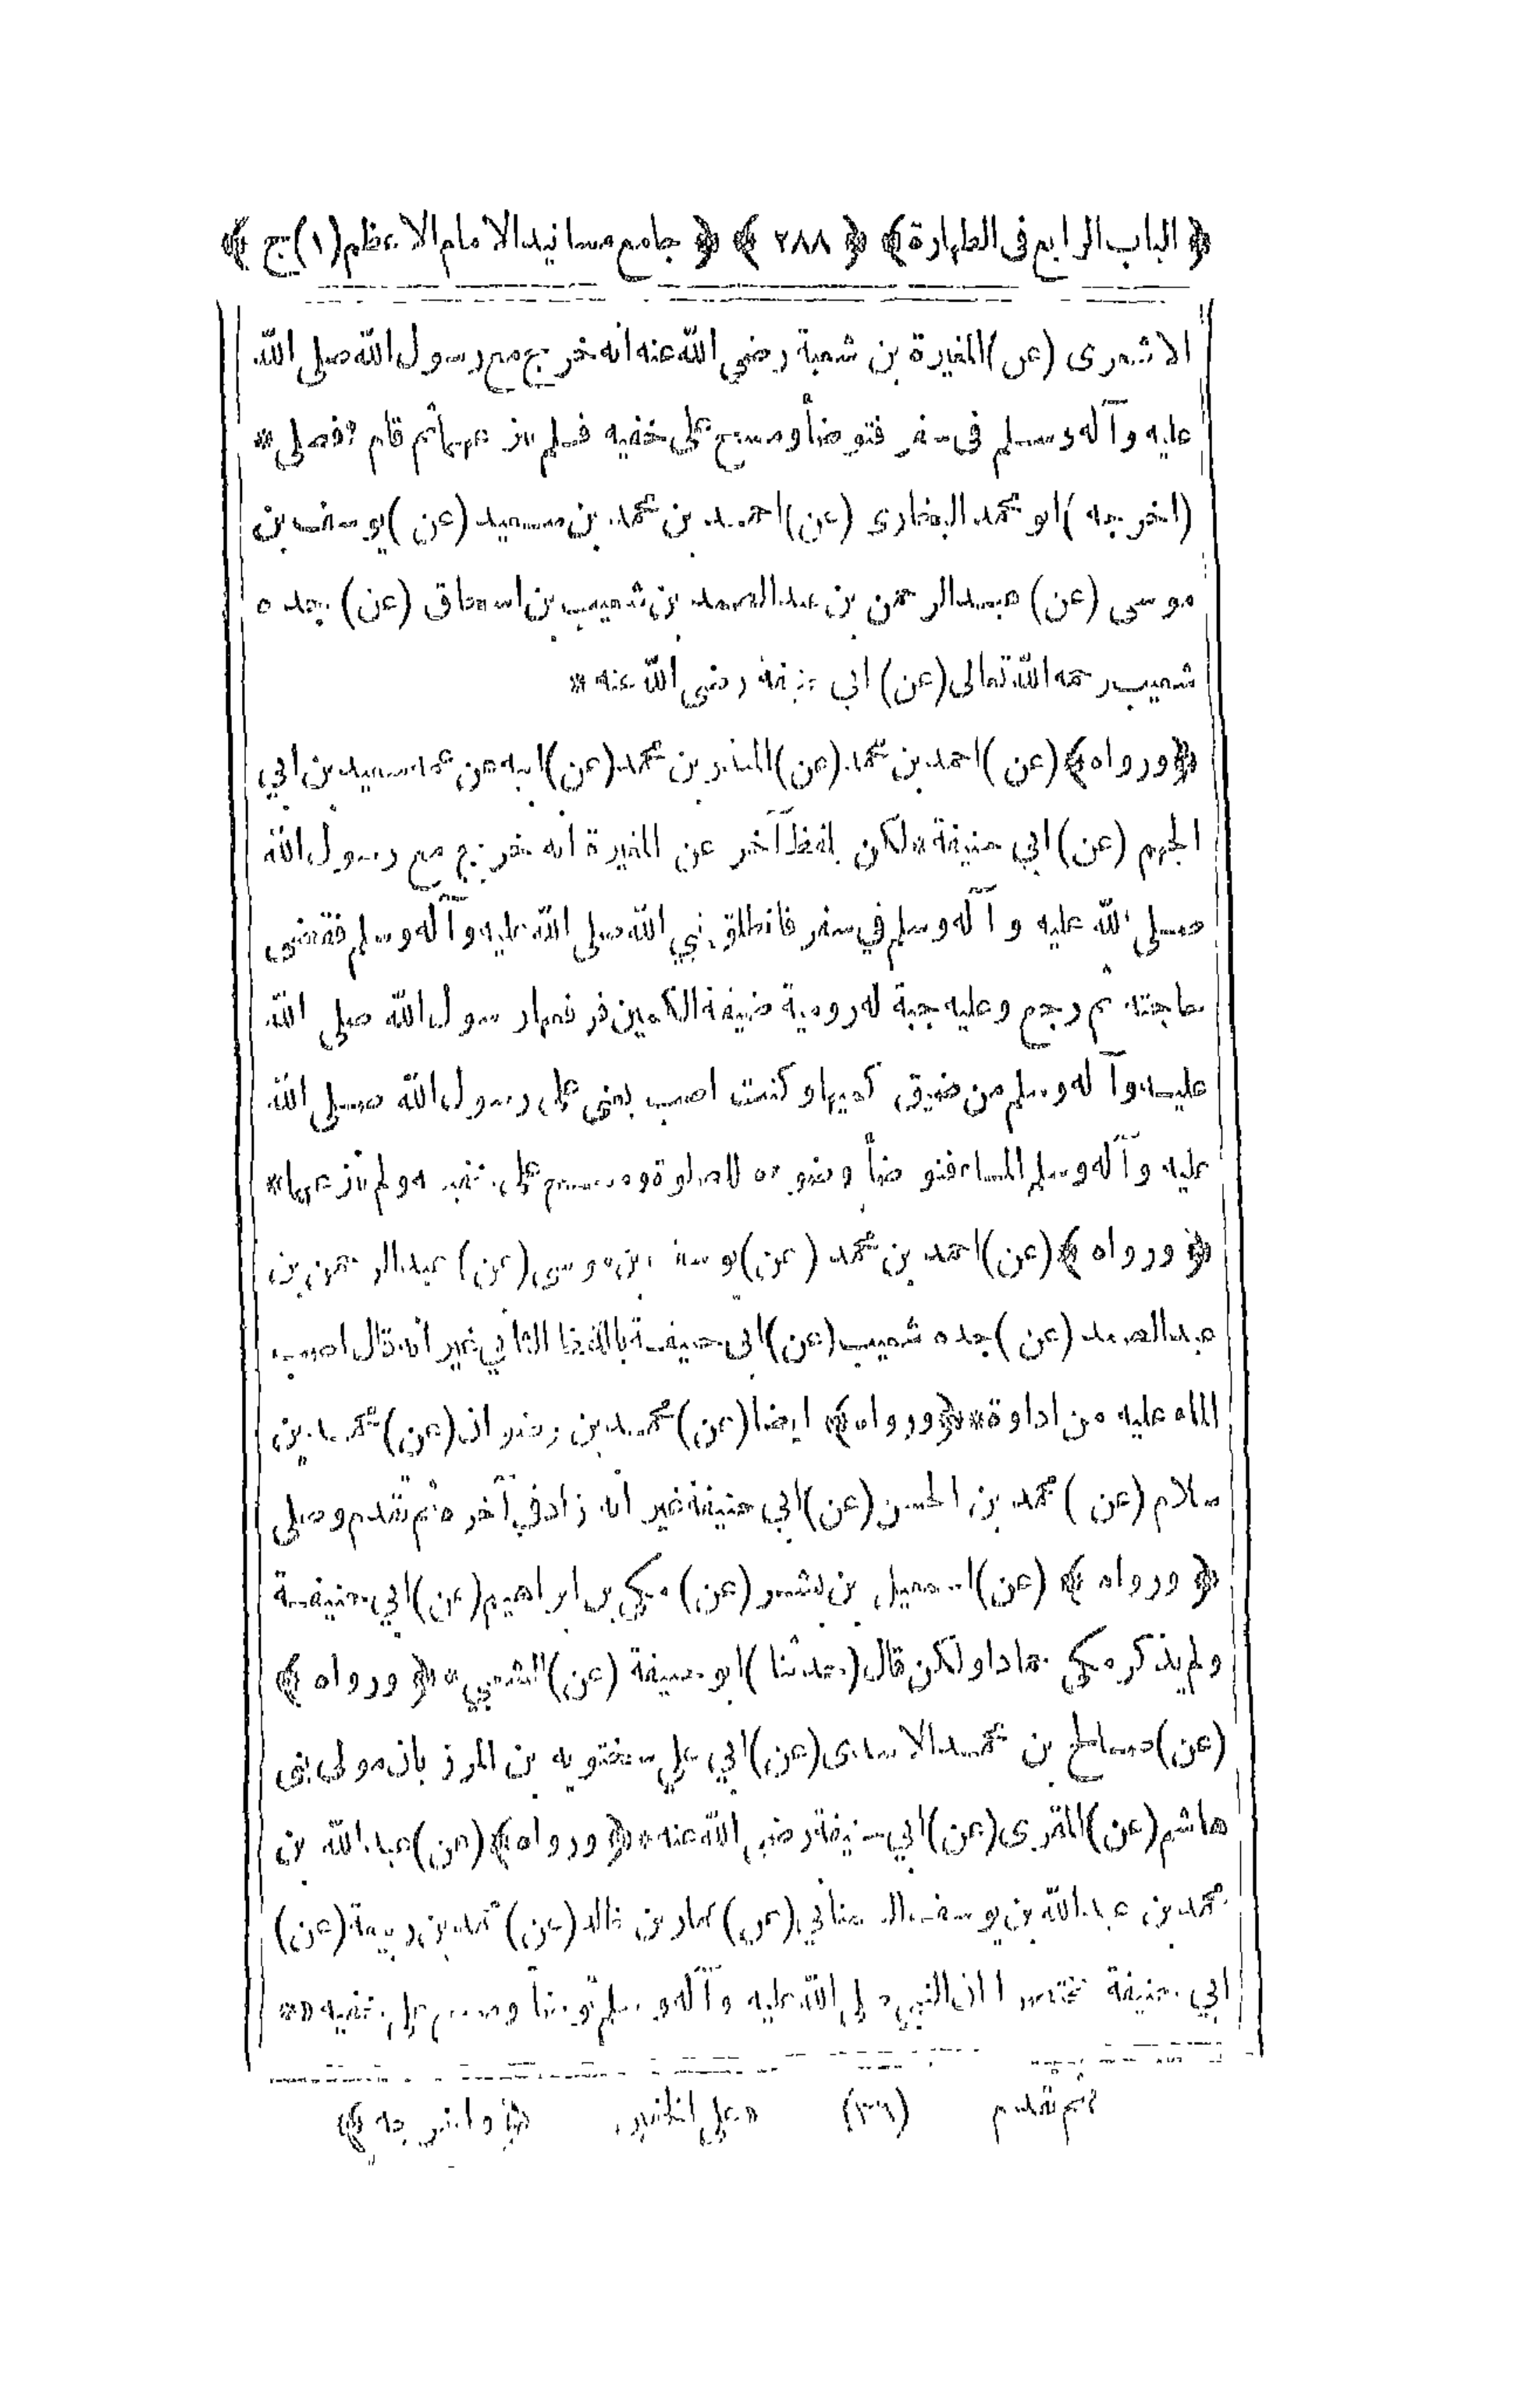 ﴿ الباب الرابع فى الطهارة ﴾ ﴿ ٢٨٨ ﴾ ﴿ جامع مسانيد الامام الاعظم (١) ج ﴾
الاشعرى (عن) المغيرة بن شعبة رضي الله عنه انه خرج مع رسول الله صلى الله
عليه وآله وسلم فى سفر فتوضأ ومسح على خفيه فلم ينزعهما ثم قام فصلى *
(اخرجه) ابو محمد البخارى (عن) احمد بن محمد بن سعيد (عن) يوسف بن
موسى (عن) عبد الرحمن بن عبد الصمد بن شعيب بن اسحاق (عن) جده
شعيب رحمه الله تعالى (عن) ابي حنيفة رضى الله عنه *
﴿ ورواه ﴾ (عن) احمد بن محمد (عن) المنذر بن محمد (عن) ابيه عن عمه سعيد بن ابي
الجهم (عن) ابي حنيفة * لكن بلفظ آخر عن المغيرة انه خرج مع رسول الله
صلى الله عليه وآله وسلم في سفر فانطلق نبي الله صلى الله عليه وآله وسلم فقضى
حاجته ثم رجع وعليه جبة له رومية ضيقة الكمين فرفعها رسول الله صلى الله
عليه وآله وسلم من ضيق كميها وكنت اصب يعنى على رسول الله صلى الله
عليه وآله وسلم الماء فتوضأ وضوءه للصلوة ومسح على خفيه ولم ينزعهما *
﴿ ورواه ﴾ (عن) احمد بن محمد (عن) يوسف بن موسى (عن) عبد الرحمن بن
عبد الصمد (عن) جده شعيب (عن) ابى حنيفة باللفظ الثاني غير انه قال اصب
الماء عليه من اداوة * ﴿ ورواه ﴾ ايضا (عن) محمد بن رضوان (عن) محمد بن
سلام (عن) محمد بن الحسن (عن) ابي حنيفة غير انه زاد في آخره ثم تقدم وصلى
﴿ ورواه ﴾ (عن) اسمعيل بن بشر (عن) مكي بن ابراهيم (عن) ابي حنيفة
ولم يذكر مكي حمادا ولكن قال (حدثنا) ابو حنيفة (عن) الشعبي * ﴿ ورواه ﴾
(عن) صالح بن محمد الاسدى (عن) ابي علي سختويه بن المرزبان مولى بنى
هاشم (عن) المقرى (عن) ابي حنيفة رضى الله عنه * ﴿ ورواه ﴾ (عن) عبد الله بن
محمد بن عبد الله بن يوسف (عن) عمار بن خالد (عن) محمد بن ربيعة (عن)
ابي حنيفة مختصرا ان النبي صلى الله عليه وآله وسلم توضأ ومسح على خفيه **
ثم تقدم (٣٦) على الخفين ﴿ واخرجه ﴾